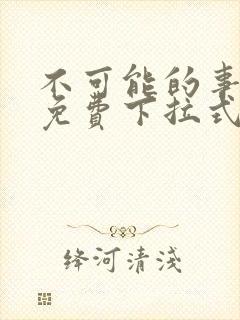 不可能的事
免費下拉式
绛河清淺